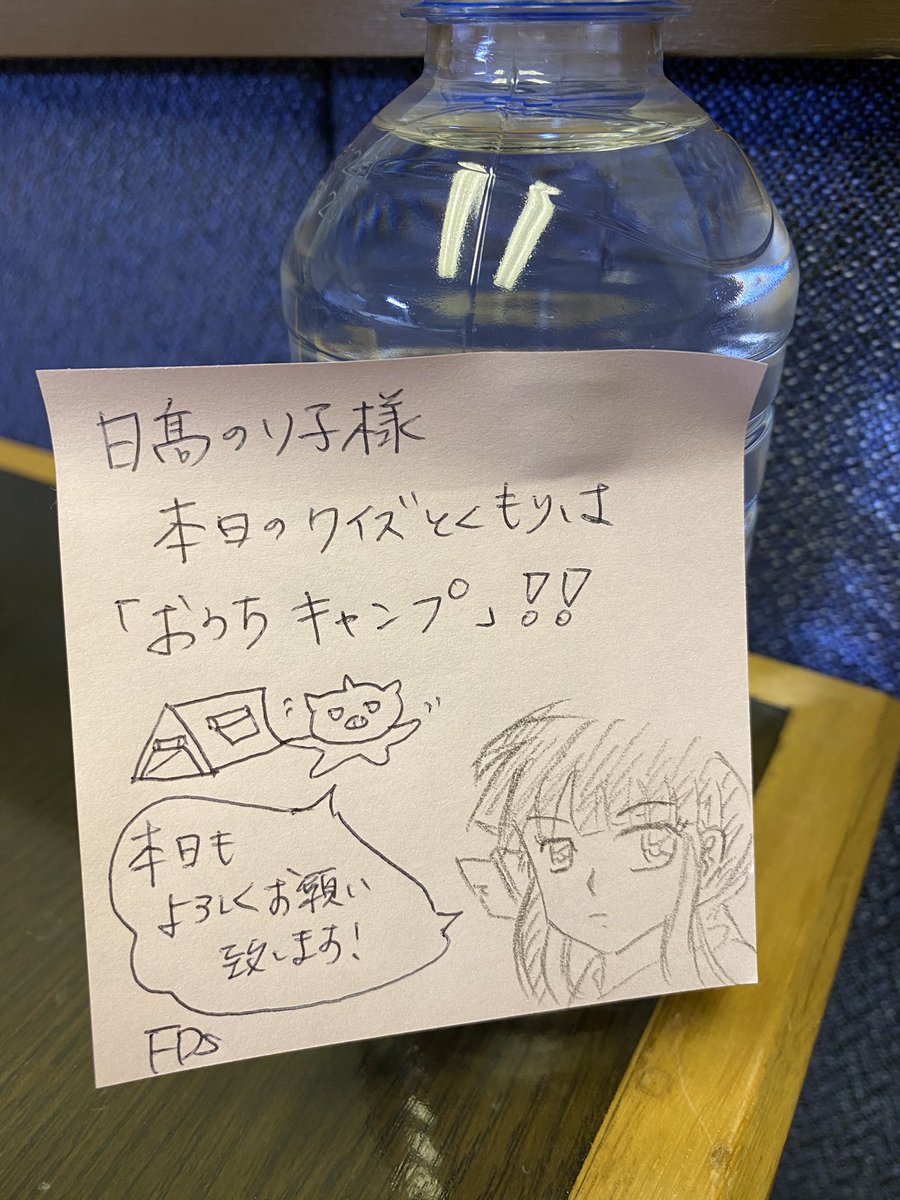 日髙のり子様
本日のワイズとくもりは
「おうちキャンプ」!!
本日も
よろしくお願い
致します!
FDS